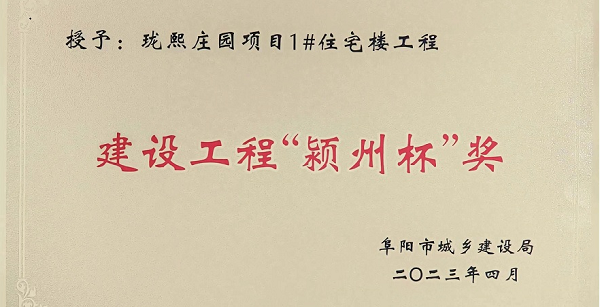 授予：珑熙庄园项目1#住宅楼工程
建设工程“颍州杯”奖
阜阳市城乡建设局
二〇二三年四月